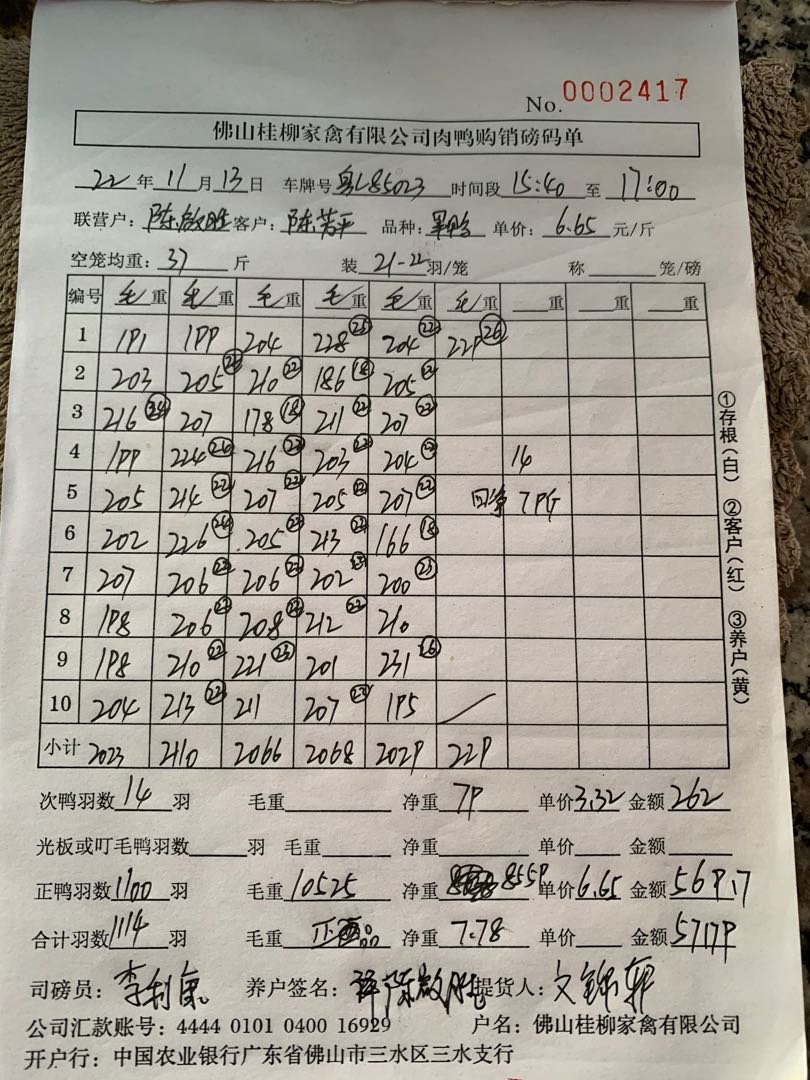 No. 0002417
佛山桂柳家禽有限公司肉鸭购销磅码单
22年11月13日 车牌号粤L85023 时间段15:40至17:00
联营户:陈啟胜 客户:陈芳平 品种: 单价:6.65元/斤
空笼均重:37斤 装21-22羽/笼 称 笼/磅
编号 毛重 毛重 毛重 毛重 毛重 毛重 重 重 重
1 191 199 204 228㉕ 204㉒ 229㉖
2 203 205 210㉒ 186⑱ 205㉒
3 216㉔ 207 178⑱ 211㉒ 207㉒
4 199 224 216 203 204 14
5 205 214㉒ 207㉒ 205㉒ 207㉒ 79斤
6 202 226 205 213 166⑱
7 207 206 206 202 200
8 198 206 208 212㉒ 210
9 198 210㉒ 221㉓ 201 231㉖
10 204 213㉒ 211 207 195
小计 2023 2110 2066 2068 2029 229
次鸭羽数14羽 毛重 净重79 单价3.32 金额262
光板或叮毛鸭羽数 羽 毛重 净重 单价 金额
正鸭羽数1100羽 毛重10525 净重8559 单价6.65 金额56917
合计羽数1114羽 毛重 正品 净重7.78 单价 金额57179
司磅员:李利康 养户签名:陈啟胜 提货人:文锦
公司汇款账号:4444 0101 0400 16929 户名:佛山桂柳家禽有限公司
开户行:中国农业银行广东省佛山市三水区三水支行
①存根(白) ②客户(红) ③养户(黄)